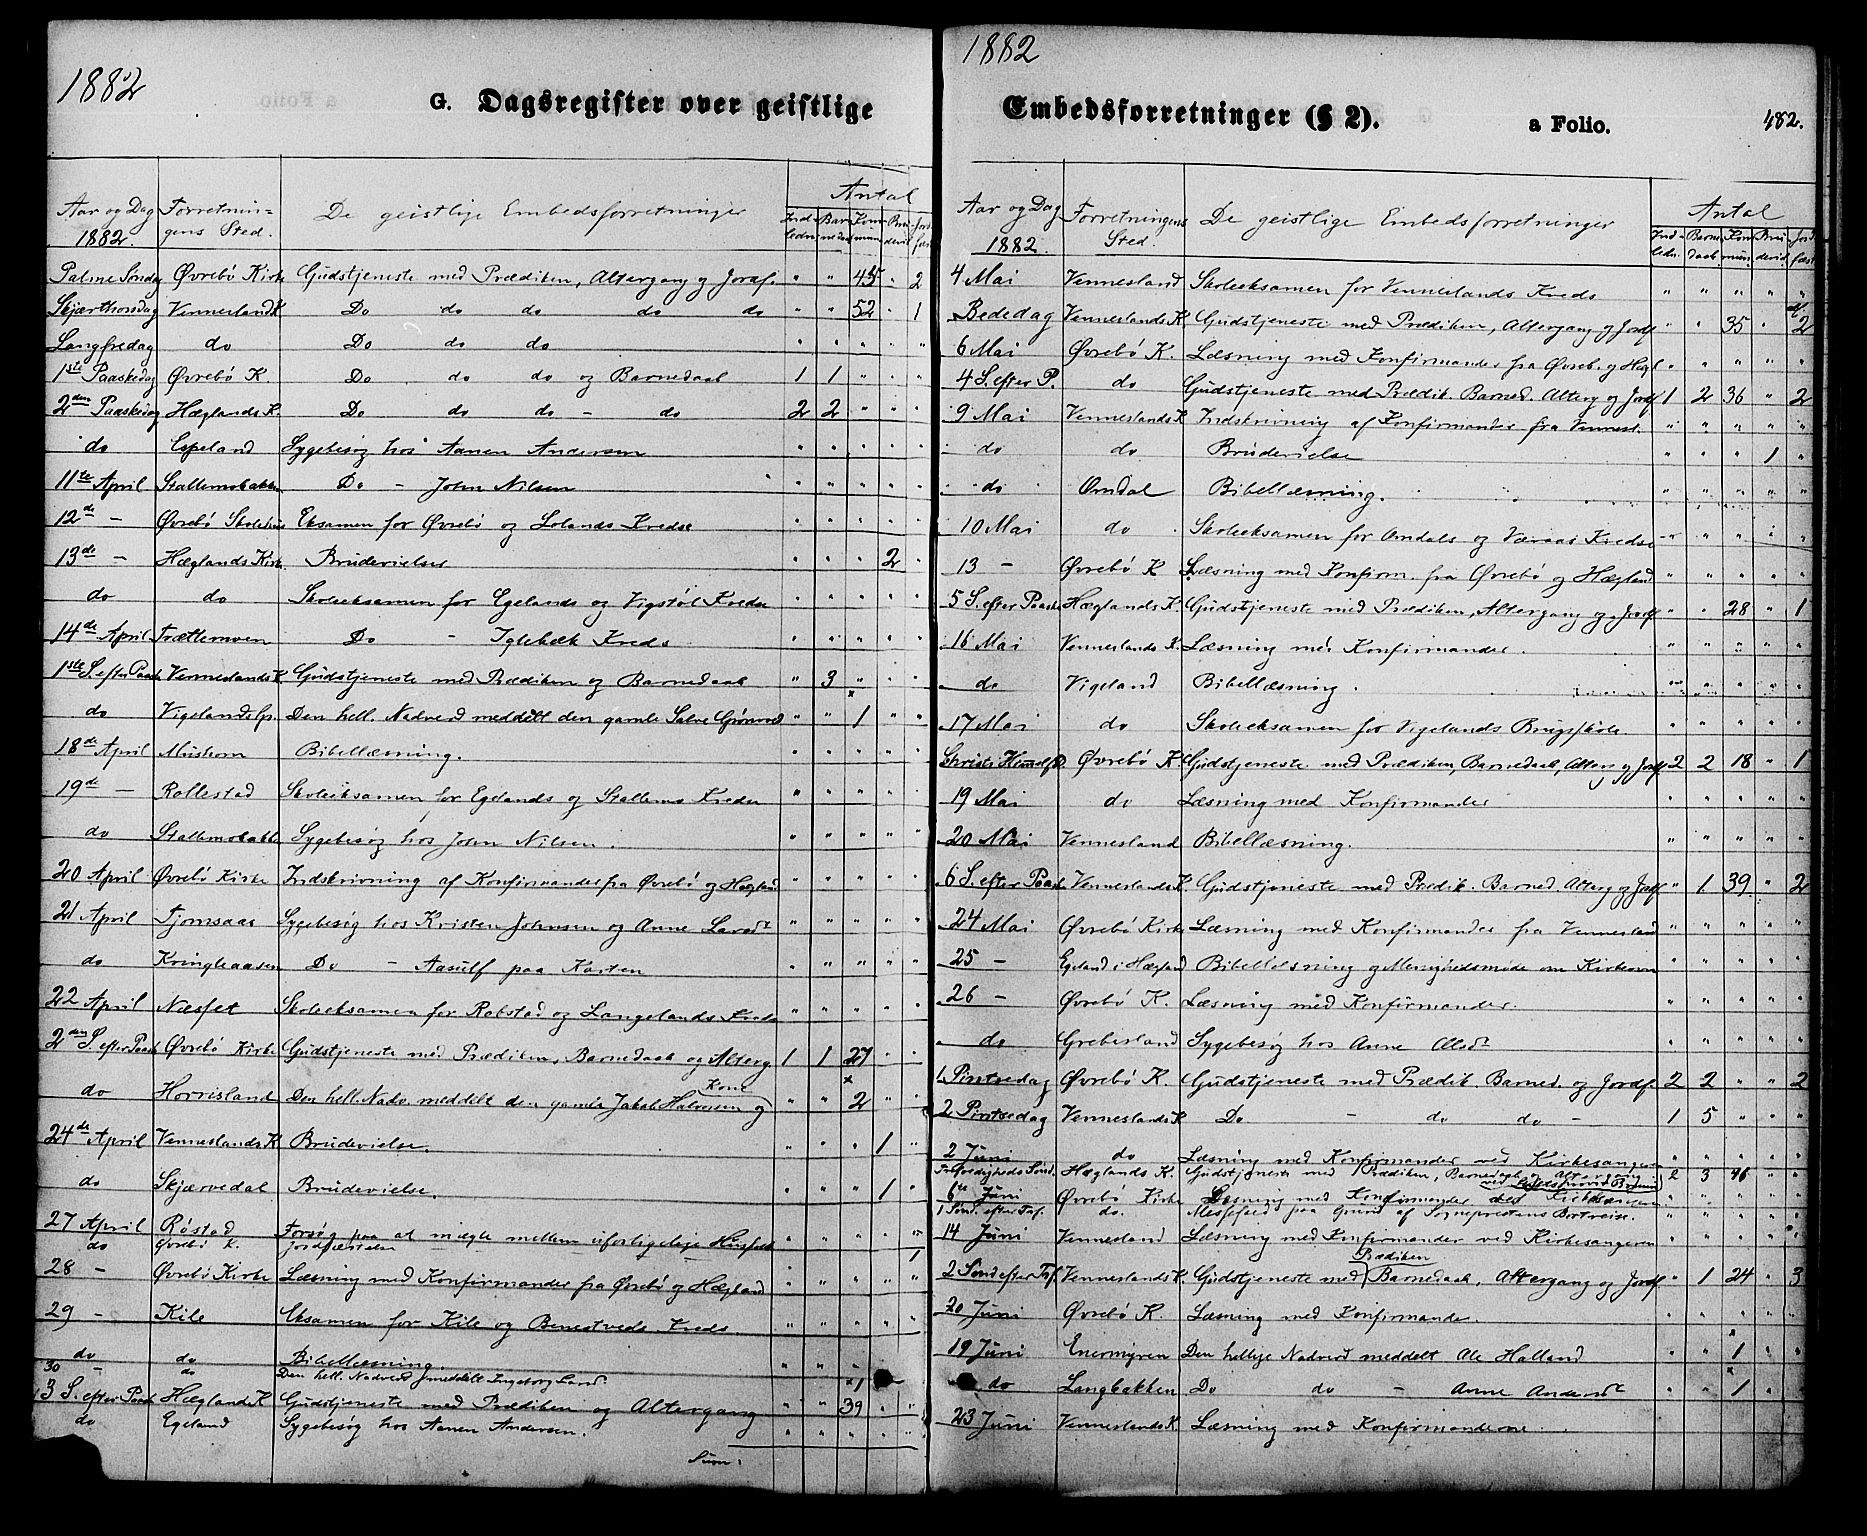 1882
G. Dagsregister over geistlige
Aar og Dag 1882. Forretningens Sted. De geistlige Embedsforretninger Antal
Indledn. Barnedaab Kommun. Brudevi. Jordfæst.
Palme Søndag Øvrebö Kirke Gudstjeneste med Prædiken, Altergang og Jordf. " " 45 " 2
Skjærthorsdag Vennesland K Do do do do do " " 52 " 1
Langfredag do Do do do " " " " "
1ste Paaskedag Øvrebö K. Do do do og Barnedaab 1 1 " " "
2den Paaskedag Hæglands K. Do do do – do 2 2 " " "
do Espeland Sygebesøg hos Aanen Andersen " " " " "
11te April Stallemobakken Do – John Nilsen " " " " "
12de – Øvrebö Skolehus Eksamen for Øvrebö og Lolands Kredse " " " " "
13de – Hæglands Kirke Brudevielser " " " 2 "
do do Skoleeksamen for Egelands og Vigstöl Kredse " " " " "
14de April Trætlemoen Do – Iglebæk Kreds " " " " "
1ste S. efter Paask Venneslands K. Gudstjeneste med Prædiken og Barnedaab " 3 " " "
do Vigelands Den hell. Nadverd meddelt den gamle Salve " " 1 " "
18de April Mushom Bibellæsning. " " " " "
19de – Rollestad Skoleeksamen for Egelands og Stallemo Kredse " " " " "
do Stallemobakken Sygebesøg hos John Nilsen. " " " " "
20 April Øvrebö Kirke Indskrivning af Konfirmander fra Øvrebö og Hægland " " " " "
21 April Tjomsaas Sygebesøg hos Kristen Johnsen og Anne " " " " "
do Kringleaasen Do – Aasulf paa Karten " " " " "
22 April Næset Skoleeksamen for Robstad og Langelands Kredse " " " " "
2den S. efter Paask Øvrebö Kirke Gudstjeneste med Prædiken, Barnedaab og Alterg. 1 1 27 " "
Kone
do Horrisland Den hell. Nadv. meddelt den gamle Jakob Halvorsen og " " 2 " "
24de April Venneslands K Brudevielse. " " " 1 "
do Skjærvedal Brudevielse. " " " 1 "
27 April Röstad Forsøg paa at mægle mellem uforligelige " " " " "
do Øvrebö K. Jordfæstelse 1
28 – Øvrebö Kirke Læsning med Konfirmander fra Øvrebö og Hægland " " " " "
29 – Kile Eksamen for Kile og Benestveds Kreds. " " " " "
do do Bibellæsning. " " "
30 – do Den hell. Nadverd meddelt Ingeborg 1
3 S. efter Paask Hæglands K Gudstjeneste med Prædiken og Altergang " " 39 " "
do Egeland Sygebesøg hos Aanen Andersen. " " " " "
Sum:
1882
Embedsforretninger (§ 2).
a Folio. 482.
Aar og Dag 1882. Forretningens Sted. De geistlige Embedsforretninger Antal
Indledn. Barnedaab Kommun. Brudevid. Jordfæst.
4 Mai Vennesland Skoleeksamen for Venneslands Kreds " " " " "
Bededag Venneslands K. Gudstjeneste med Prædiken, Altergang og Jordf " " 35 " 2
6 Mai Øvrebö K. Læsning med Konfirmander fra Øvreb. og Hægl " " " " "
4 S. efter P. do Gudstjeneste med Prædik. Barned. Alterg og Jordf 1 2 36 " 2
9 Mai Venneslands K Indskrivning af Konfirmander fra Vennesl. " " " " "
do do Brudevielse " " " 1 "
do Omdal Bibellæsning. " " " " "
10 Mai do Skoleeksamen for Omdals og Væraas Kredse " " " " "
13 – Øvrebö K Læsning med Konfirm. fra Øvrebö og Hægland " " " " "
5 S. efter Paask Hæglands K. Gudstjeneste med Prædiken, Altergang og Jordf " " 28 " 1
16 Mai Venneslands K. Læsning med Konfirmander. " " " " "
do Vigeland Bibellæsning. " " " " "
17 Mai do Skoleeksamen for Vigelands Brugsskole. " " " " "
Christi Himmelf D. Øvrebö K. Gudstjeneste med Prædiken, Barnedaab, Alterg og Jordf 2 2 18 " 1
19 Mai do Læsning med Konfirmander " " " " "
20 Mai Vennesland Bibellæsning. " " " " "
6 S. efter Paask Venneslands K. Gudstjeneste med Prædik. Barned. Alterg og Jordf " 1 39 " 2
24 Mai Øvrebö Kirke Læsning med Konfirmander fra Vennesland " " " " "
25 – Egeland i Hægland Bibellæsning og Menighedsmøde om Kirkeovn " " " " "
26 – Øvrebö K. Læsning med Konfirmander. " " " " "
do Grebesland Sygebesøg hos Anne Olsdr " " " " "
1. Pintsedag Øvrebö K. Gudstjeneste med Prædik. Barned. og Jordf. 2 2 " " 2
2 Pintsedag Venneslands K Do – do do – 1 5 " " "
2 Juni do Læsning med Konfirmander ved Kirkesangeren " " " " "
Trefoldigheds Sønd. Hæglands K. Gudstjeneste med Prædiken, Barnedaab, Alterg 2 3 46 " "
6te Juni Øvrebö Kirke Læsning med Konfirmander ved Kirkesangeren " " " " "
1 Sønd. efter Tref. do. Messefald paa Grund af Sogneprestens Bortreise. " " " " "
14 Juni Vennesland Læsning med Konfirmander ved Kirkesangeren " " " " "
Prædiken
2 Sønd efter Tref. Venneslands K. Gudstjeneste med Barnedaab, Altergang og Jordf " 1 24 " 3
20 Juni Øvrebö K. Læsning med Konfirmander. " " " " "
19 Juni Enermyren Den hellige Nadverd meddelt Ole Halland " " 1 " "
do Langbakken Do do – Anne Andersdr " " 1 "
23 Juni Venneslands K. Læsning med Konfirmanderne